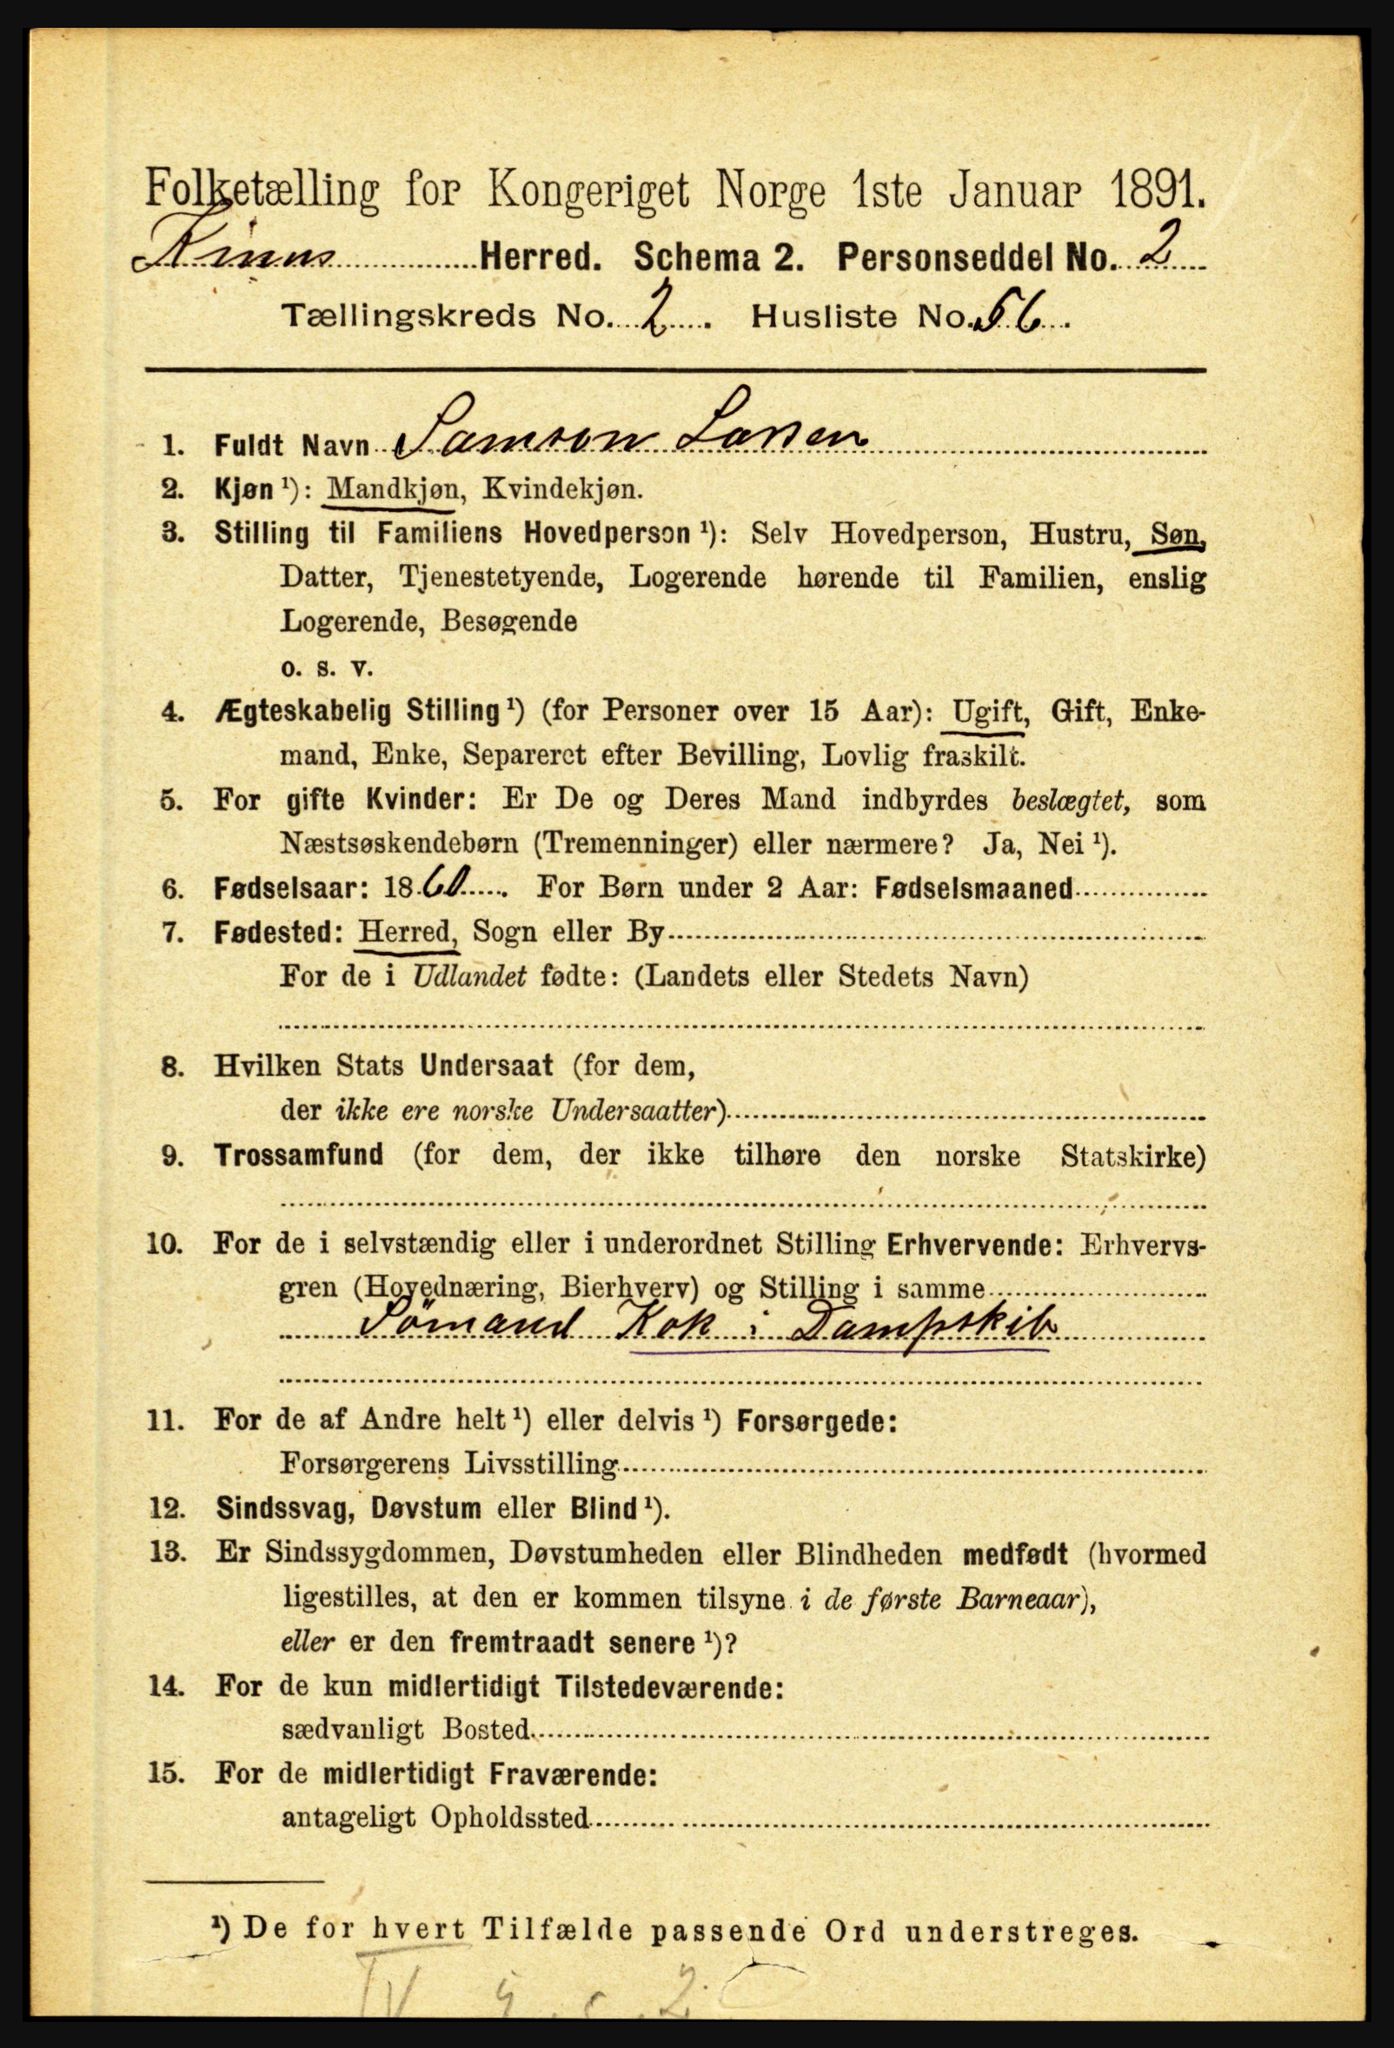 Folketælling for Kongeriget Norge 1ste Januar 1891.
Kinns Herred. Schema 2. Personseddel No. 2
Tællingskreds No. 2. Husliste No. 56.
1. Fuldt Navn Samson Larsen
2. Kjøn ¹): Mandkjøn, Kvindekjøn.
3. Stilling til Familiens Hovedperson ¹): Selv Hovedperson, Hustru, Søn,
Datter, Tjenestetyende, Logerende hørende til Familien, enslig
Logerende, Besøgende
o. s. v.
4. Ægteskabelig Stilling ¹) (for Personer over 15 Aar): Ugift, Gift, Enke-
mand, Enke, Separeret efter Bevilling, Lovlig fraskilt.
5. For gifte Kvinder: Er De og Deres Mand indbyrdes beslægtet, som
Næstsøskendebørn (Tremenninger) eller nærmere? Ja, Nei ¹).
6. Fødselsaar: 1860. For Børn under 2 Aar: Fødselsmaaned
7. Fødested: Herred, Sogn eller By
For de i Udlandet fødte: (Landets eller Stedets Navn)
8. Hvilken Stats Undersaat (for dem,
der ikke ere norske Undersaatter)
9. Trossamfund (for dem, der ikke tilhøre den norske Statskirke)
10. For de i selvstændig eller i underordnet Stilling Erhvervende: Erhvervs-
gren (Hovednæring, Bierhverv) og Stilling i samme
Sömand Kok i Dampskib
11. For de af Andre helt ¹) eller delvis ¹) Forsørgede:
Forsørgerens Livsstilling
12. Sindssvag, Døvstum eller Blind ¹).
13. Er Sindssygdommen, Døvstumheden eller Blindheden medfødt (hvormed
ligestilles, at den er kommen tilsyne i de første Barneaar),
eller er den fremtraadt senere ¹)?
14. For de kun midlertidigt Tilstedeværende:
sædvanligt Bosted
15. For de midlertidigt Fraværende:
antageligt Opholdssted
¹) De for hvert Tilfælde passende Ord understreges.